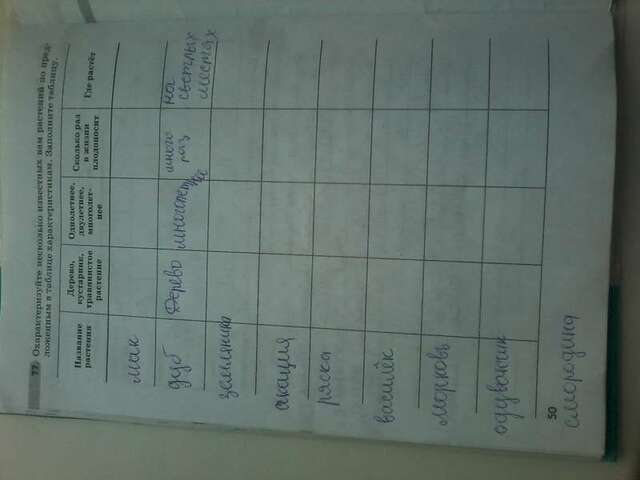 77. Охарактеризуйте несколько известных вам растений по пред-
ложенным в таблице характеристикам. Заполните таблицу.
Название
растения
Дерево,
кустарник,
травянистое
растение
Однолетнее,
двулетнее,
многолет-
нее
Сколько раз
в жизни
плодоносит
Где растёт
мак
дуб
Дерево
многолетнее
много
раз
на
светлых
местах
земляника
акация
ряска
василёк
морковь
одуванчик
50
смородина